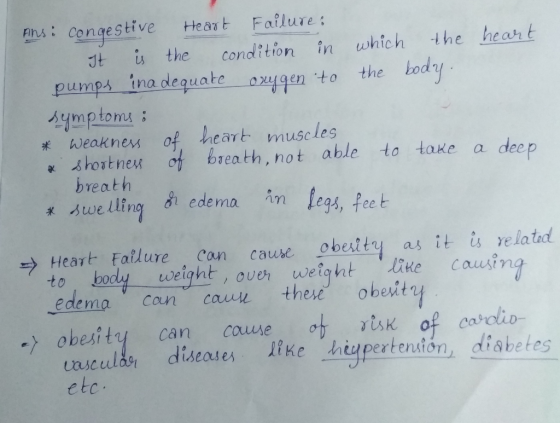 Ans: Congestive Heart Failure:
It is the condition in which the heart
pumps inadequate oxygen to the body.
Symptoms:
* weakness of heart muscles
* shortness of breath, not able to take a deep
breath
* swelling & edema in legs, feet
⇒ Heart Failure can cause obesity as it is related
to body weight, over weight like causing
edema can cause these obesity.
→ obesity can cause of risk of cardio-
vascular diseases like hypertension, diabetes
etc.